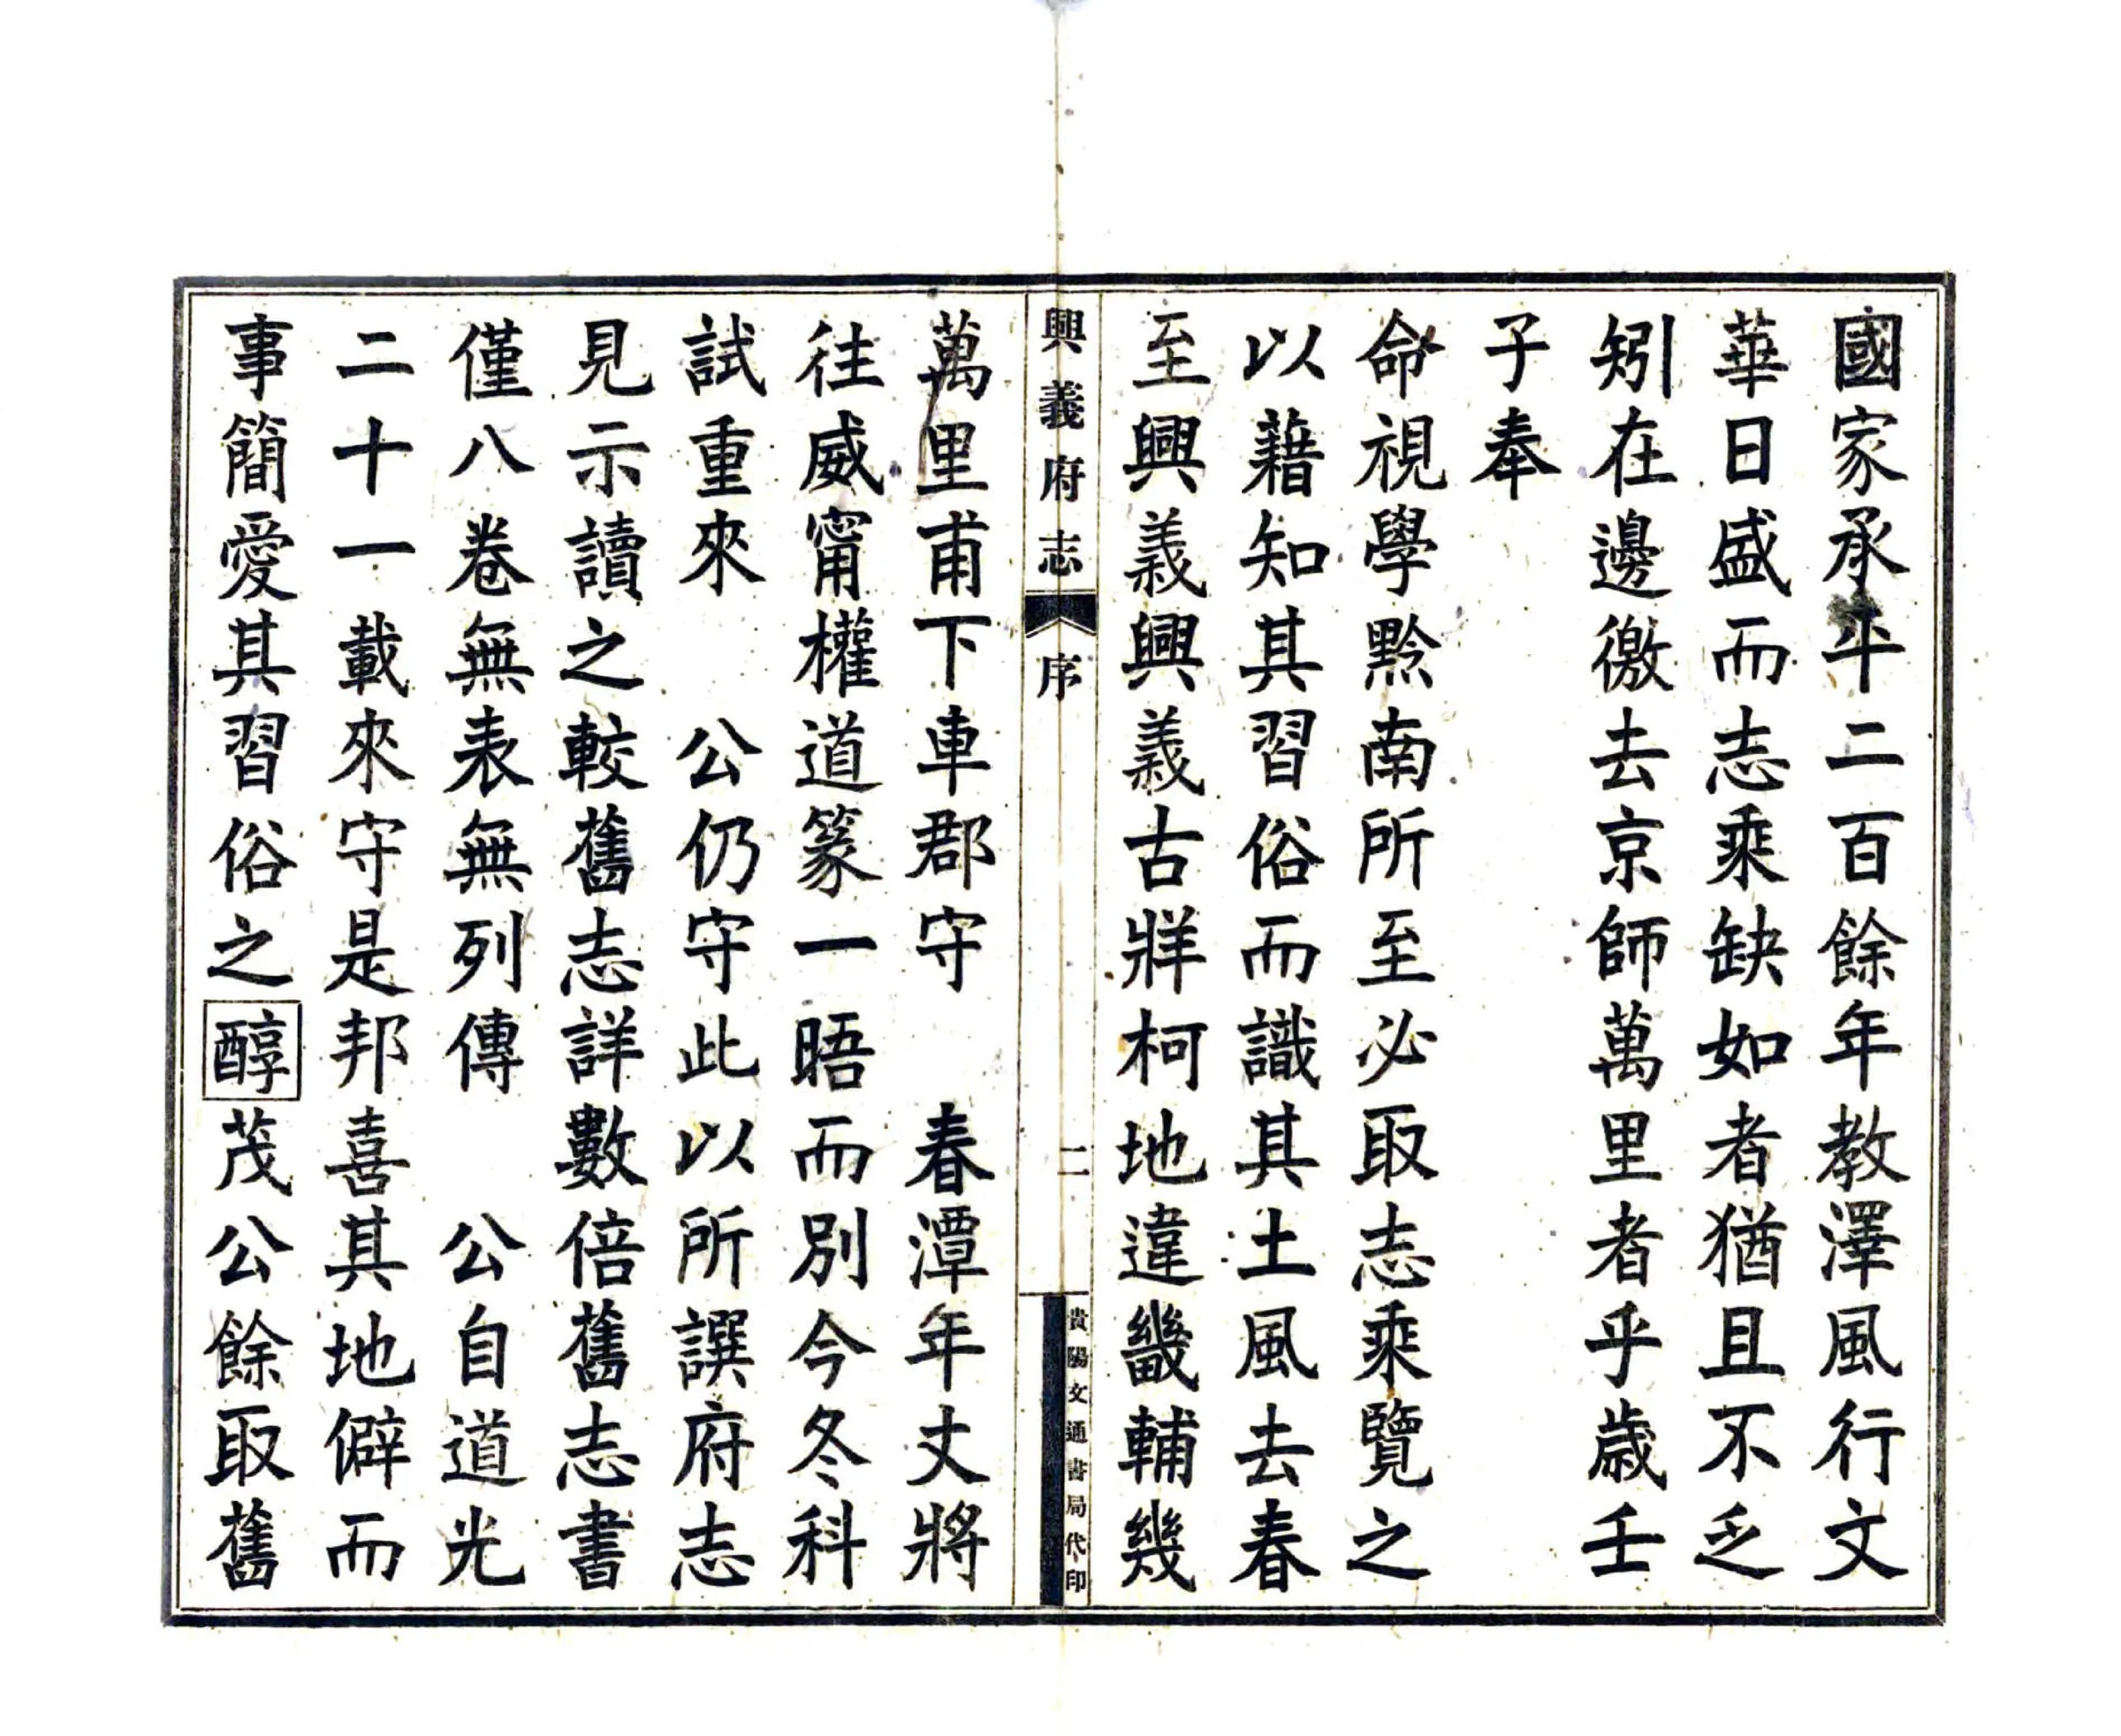 國家承平二百餘年教澤風行文
華日盛而志乘缺如者猶且不乏
矧在邊徼去京師萬里者乎歲壬
子奉
命視學黔南所至必取志乘覽之
以藉知其習俗而識其土風去春
至興義興義古牂柯地違畿輔幾
興義府志
序
二
貴陽文通書局代印
萬里甫下車郡守　春潭年丈將
往威甯權道篆一晤而別今冬科
試重來　公仍守此以所譔府志
見示讀之較舊志詳數倍舊志書
僅八卷無表無列傳　公自道光
二十一載來守是邦喜其地僻而
事簡愛其習俗之醇茂公餘取舊